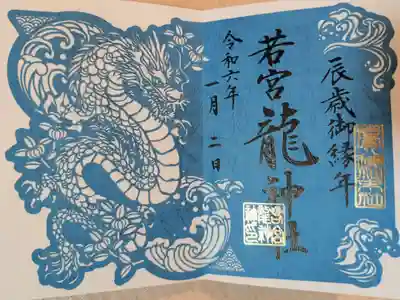 辰歳御縁年
若宮龍神社
令和六年
一月二日